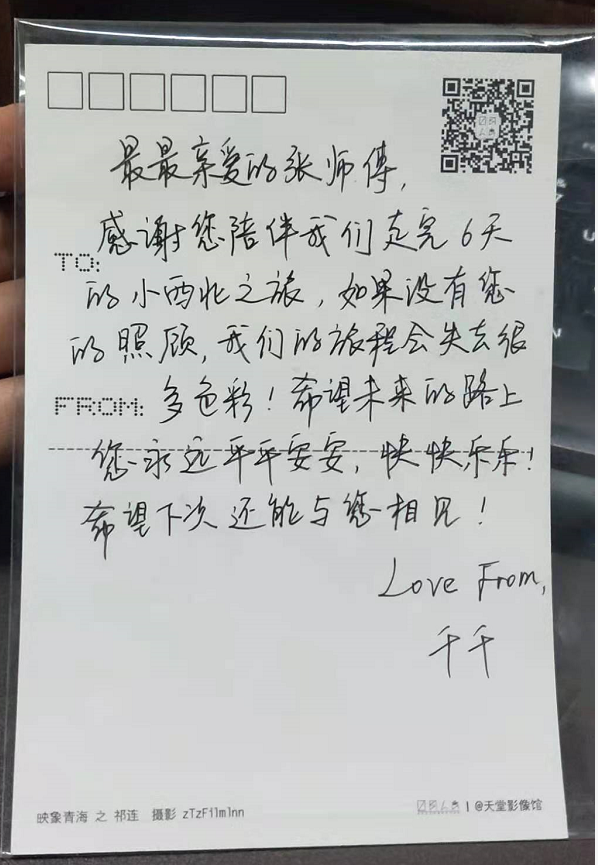 最最亲爱的张师傅,
感谢您陪伴我们走完6天
TO:
的小西北之旅,如果没有您
的照顾,我们的旅程会失去很
FROM:
多色彩!希望未来的路上
您永远平平安安,快快乐乐!
希望下次还能与您相见!
Love From,
千千
映象青海 之 祁连 摄影 zTzFilmlnn
|@天堂影像馆